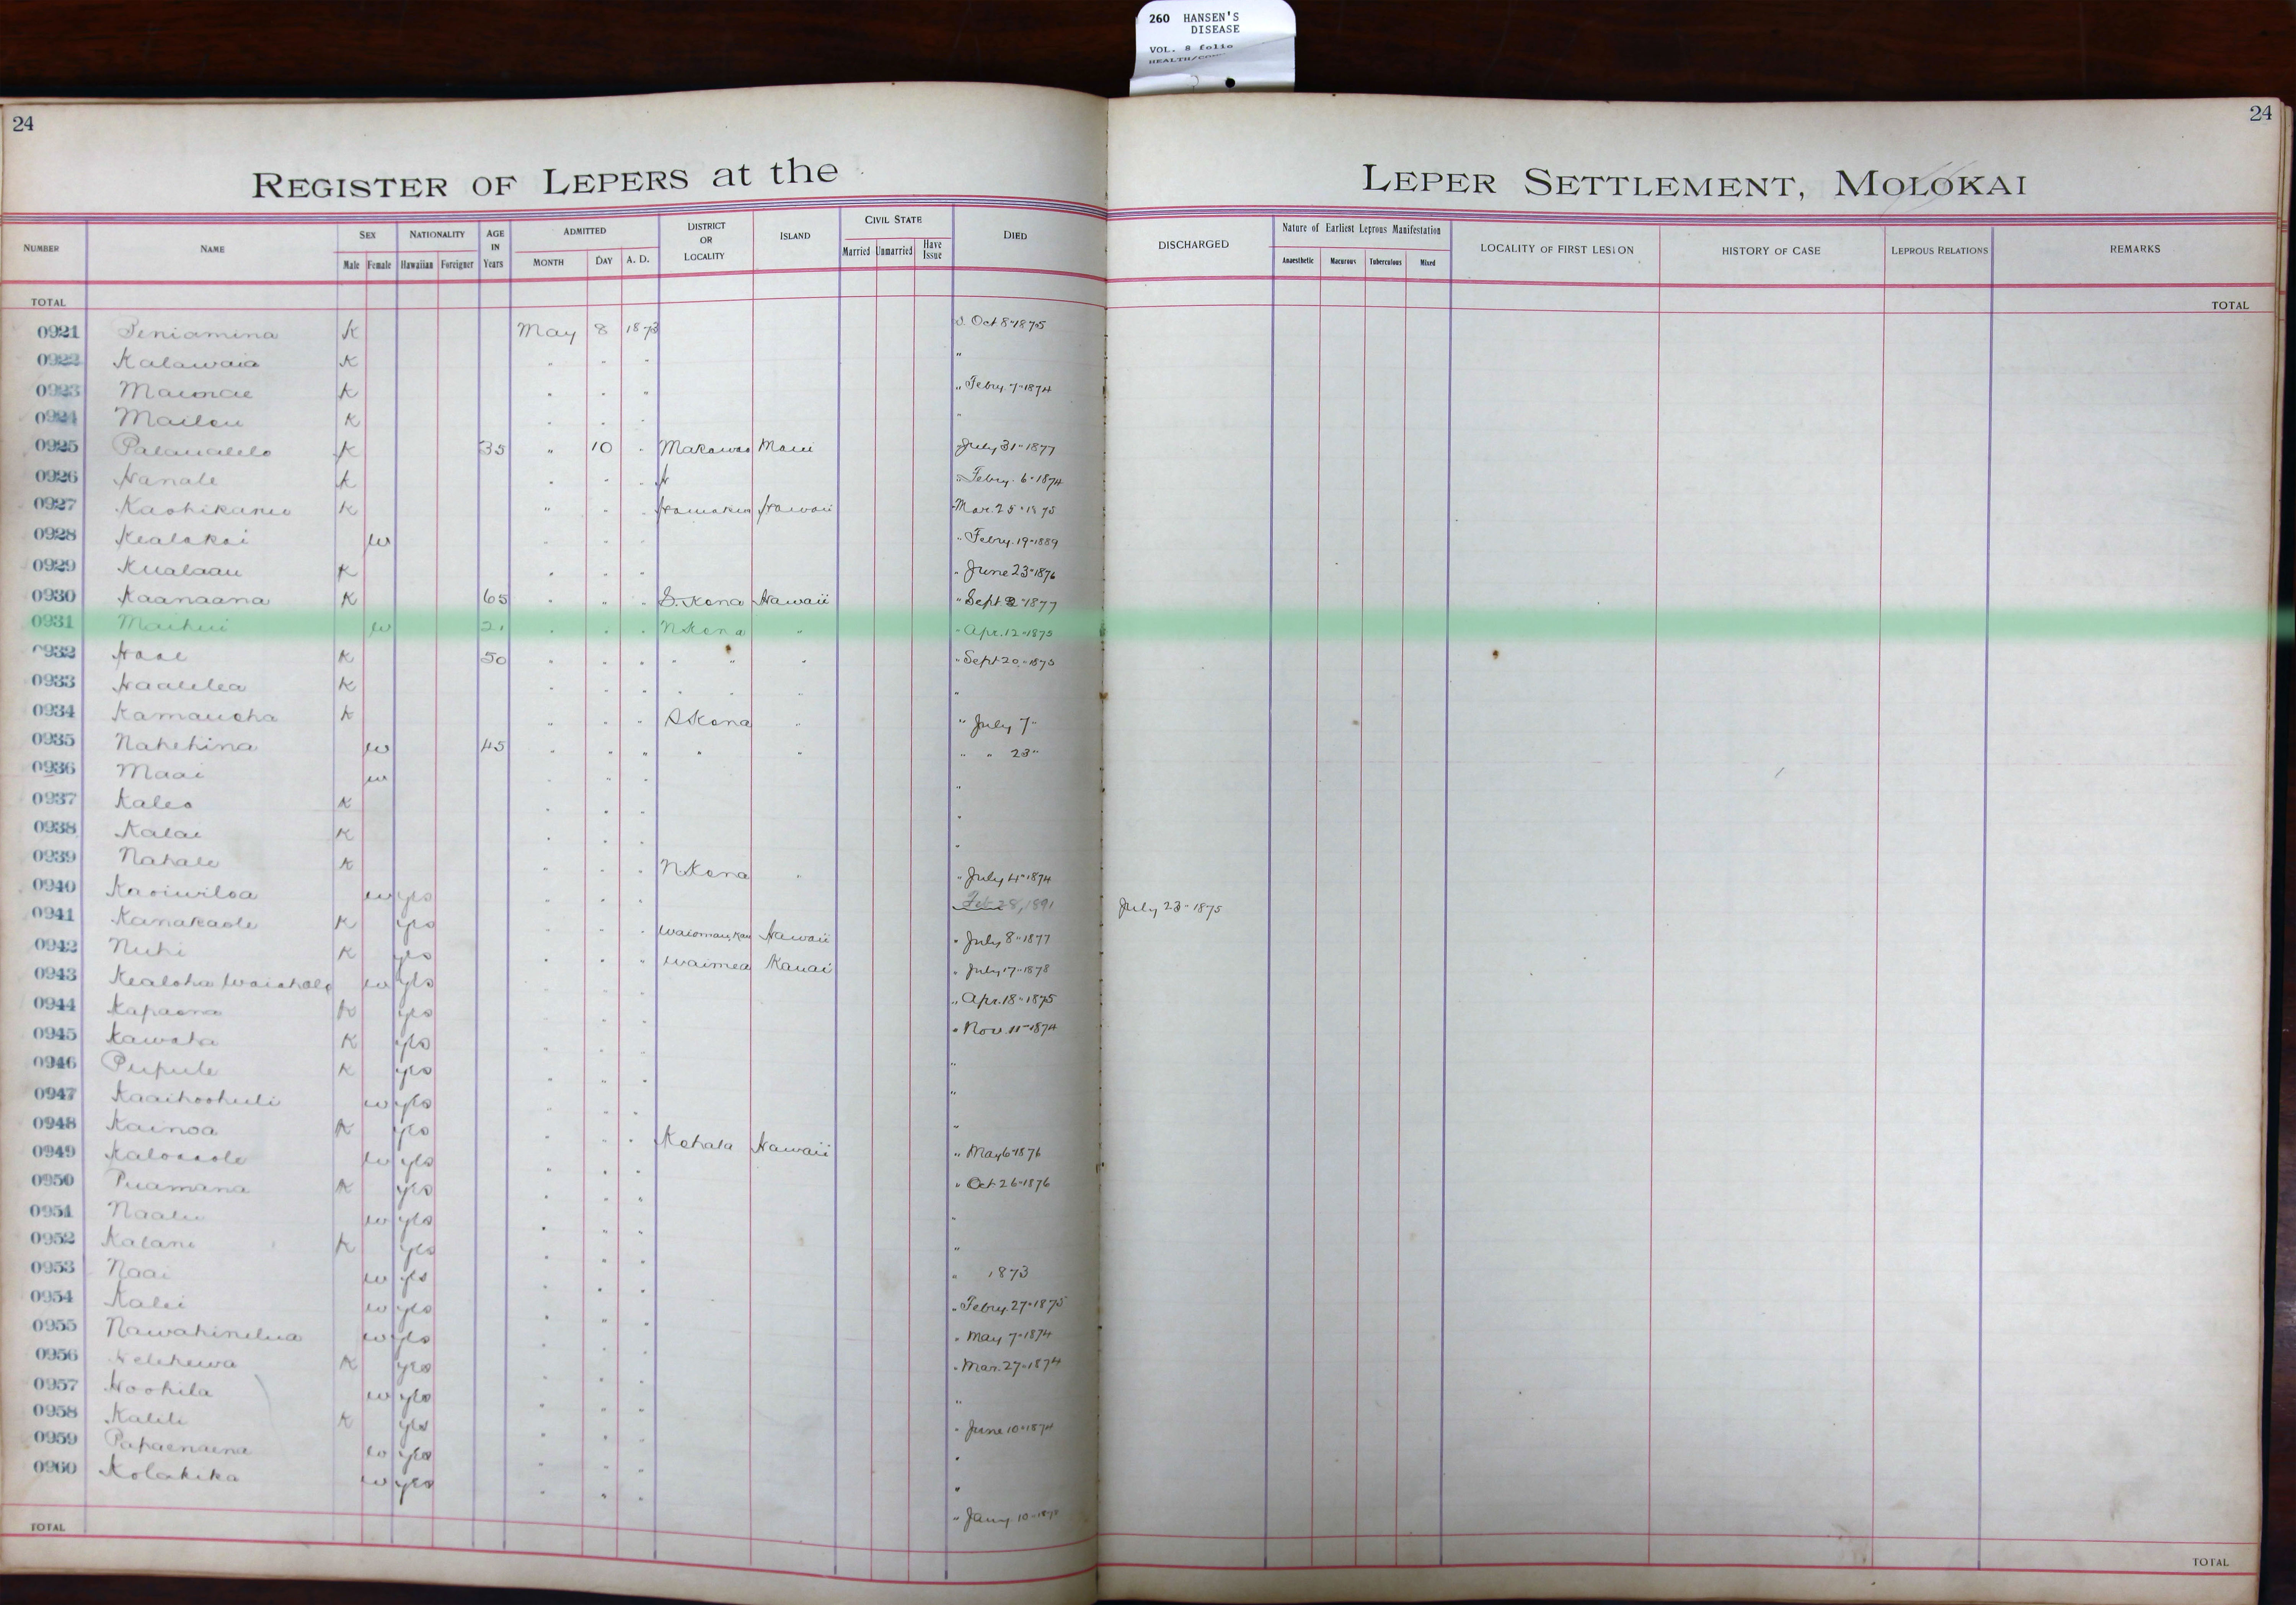 260 HANSEN'S
DISEASE
VOL. 8 folio
24
24
REGISTER OF LEPERS at the LEPER SETTLEMENT, MOLOKAI
NUMBER NAME SEX Male Female NATIONALITY Hawaiian Foreigner AGE IN Years ADMITTED MONTH DAY A. D. DISTRICT OR LOCALITY ISLAND CIVIL STATE Married Unmarried Have Issue DIED DISCHARGED Nature of Earliest Leprous Manifestation Anaesthetic Macurous Tuberculous Mixed LOCALITY OF FIRST LESION HISTORY OF CASE LEPROUS RELATIONS REMARKS
TOTAL TOTAL
0921 Peniamina K May 8 1873 Oct 8 " 1875
0922 Kalawaia K " " " "
0923 K " " " " Febry. 7 " 1874
0924 K " " " "
0925 K 35 " 10 " Makawao Maui July 31 " 1877
0926 Hanale K " " " " Febry. 6 " 1874
0927 K " " " Hamakua Hawaii Mar. 25 " 1875
0928 Kealakai w " " " " Febry. 19 " 1889
0929 Kualaau K " " " " June 23 " 1876
0930 Kaanaana K 65 " " " S. Kona Hawaii " Sept 2 " 1877
0931 Maihui w 21 " " " N Kona " " Apr. 12 " 1875
0932 K 50 " " " " " " " Sept 20 " 1875
0933 Haalelea K " " " " " " "
0934 Kamauoha K " " " S Kona " " July 7 "
0935 Nahehina w 45 " " " " " " " 23 "
0936 Maai w " " " "
0937 Kaleo K " " " "
0938 Kalai K " " " "
0939 Nahale K " " " N Kona " " July 4 " 1874
0940 Kaoiwiloa w yes " " " Feb 28, 1891 July 23 " 1875
0941 Kanakaole K yes " " " Hawaii " July 8 " 1877
0942 Nuhi K yes " " " Waimea Kauai " July 17 " 1878
0943 Kealoha w yes " " " " Apr. 18 " 1875
0944 Kapaona K yes " " " " Nov. 11 " 1874
0945 Kawaha K yes " " " "
0946 Pupule K yes " " " "
0947 Kaaihoohuli w yes " " " "
0948 Kainoa K yes " " " Kohala Hawaii " May 6 " 1876
0949 w yes " " " " Oct 26 " 1876
0950 Puamana K yes " " " "
0951 Naalu w yes " " " "
0952 Kalani K yes " " " " 1873
0953 Naai w yes " " " " Febry. 27 " 1875
0954 Kalei w yes " " " " May 7 " 1874
0955 w yes " " " " Mar. 27 " 1874
0956 K yes " " " "
0957 Hoohila w yes " " " " June 10 " 1874
0958 Kalili K yes " " " "
0959 Papaenaena w yes " " " "
0960 Kolakika w yes " " " " Jany. 10 "
TOTAL TOTAL